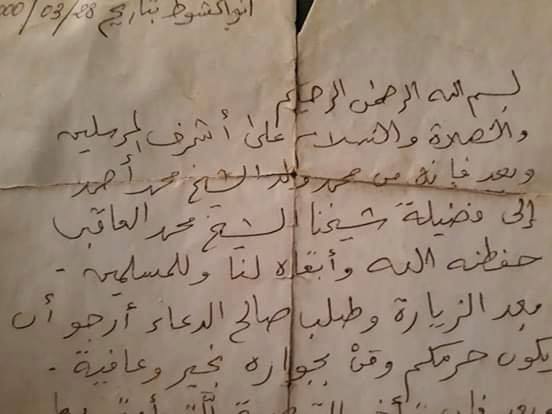 انواكشوط بتاريخ 28/03/000
بسم الله الرحمن الرحيم
والصلاة والسلام على أشرف المرسلين
وبعد فإنه من محمد ولد الشيخ محمد أحمد
إلى فضيلة شيخنا الشيخ محمد العاقب
حفظه الله وأبقاه لنا وللمسلمين -
مبعد الزيارة وطلب صالح الدعاء أرجو أن
يكون حرمكم ومَنْ بجواره بخير وعافية -